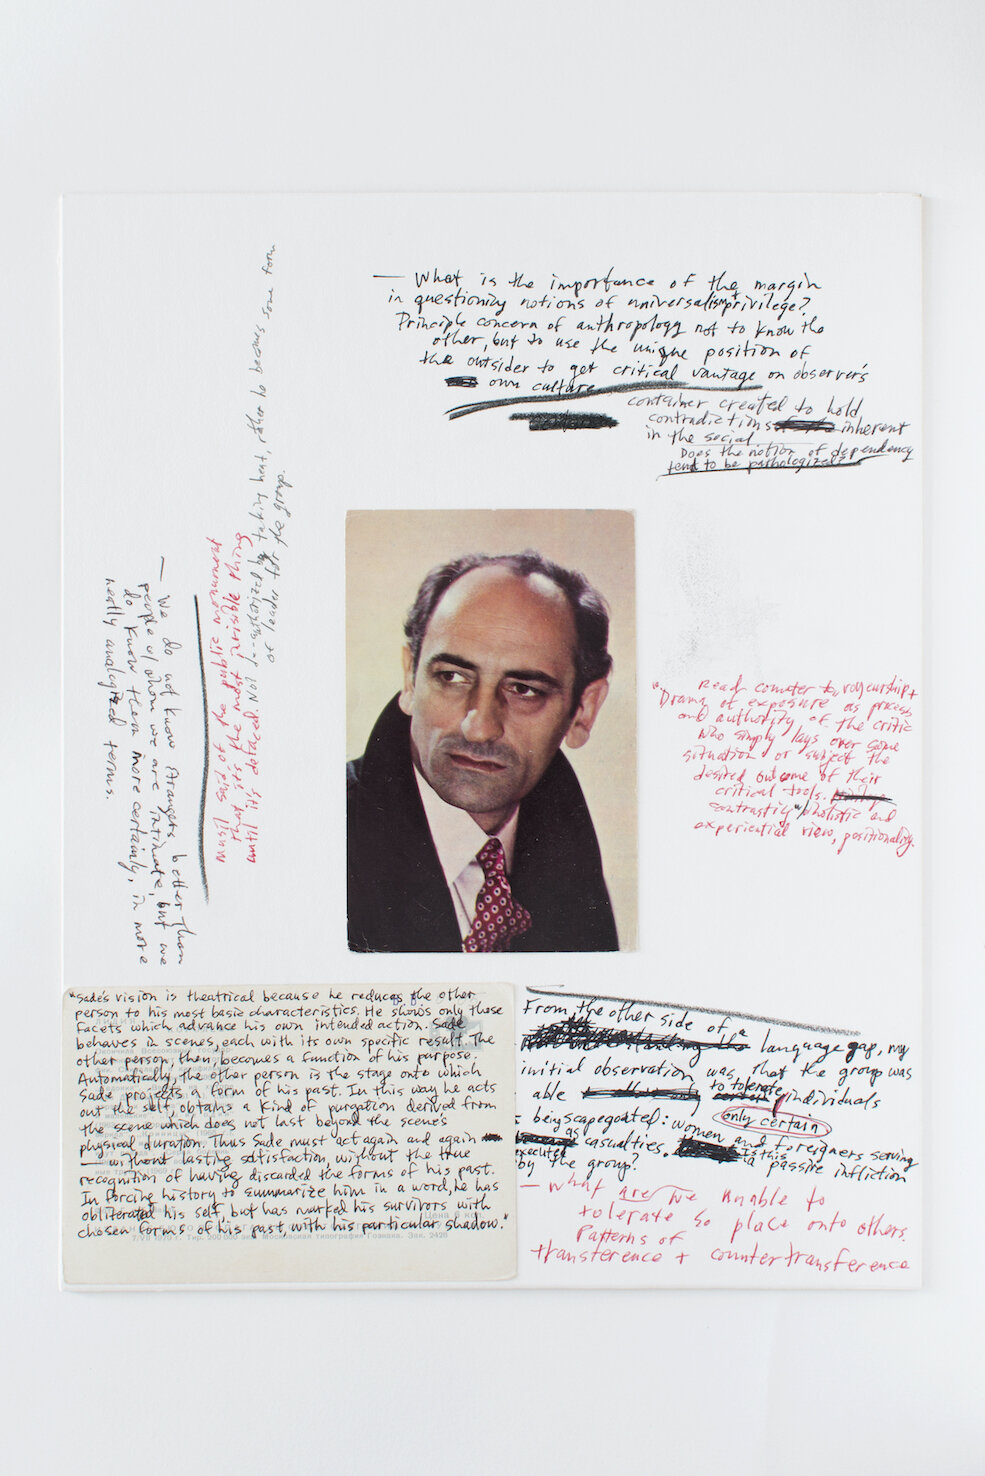 — What is the importance of the margin
in questioning notions of universalism + privilege?
Principle concern of anthropology not to know the
other, but to use the unique position of
the outsider to get critical vantage on observer's
own culture
container created to hold
contradictions inherent
in the social
Does the notion of dependency
tend to be pathologized?
taking heat, rather he becomes some form
of leader for the group.
Musil said of the public monument
that it's the most invisible thing
until it's defaced.
— We do not know strangers better than
people w/ whom we are intimate, but we
do know them more certainly, in more
neatly analogized terms.
"Read counter to voyeurship +
Drama of exposure as process
and authority of the critic
who simply lays over some
situation or subject the
desired outcome of their
critical tools.
contrasting w/ holistic and
experiential view, positionality.
"Sade's vision is theatrical because he reduces the other
person to his most basic characteristics. He shows only those
facets which advance his own intended action. Sade
behaves in scenes, each with its own specific result. The
other person, then, becomes a function of his purpose.
Automatically, the other person is the stage onto which
Sade projects a form of his past. In this way he acts
out the self, obtains a kind of purgation derived from
the scene which does not last beyond the scene's
physical duration. Thus Sade must act again and again
— without lasting satisfaction, without the true
recognition of having discarded the forms of his past.
In forcing history to summarize him in a word, he has
obliterated his self, but has marked his survivors with
chosen forms of his past, with his particular shadow."
Тер. 200 000 Московская типография Гознака. Зак. 2426
From the other side of a
language gap, my
initial observation was, that the group was
able to tolerate individuals
being scapegoated: only certain
women and foreigners serving
as casualties. Is this a passive infliction
executed by the group?
— What are we unable to
tolerate so place onto others.
Patterns of
transference + countertransference